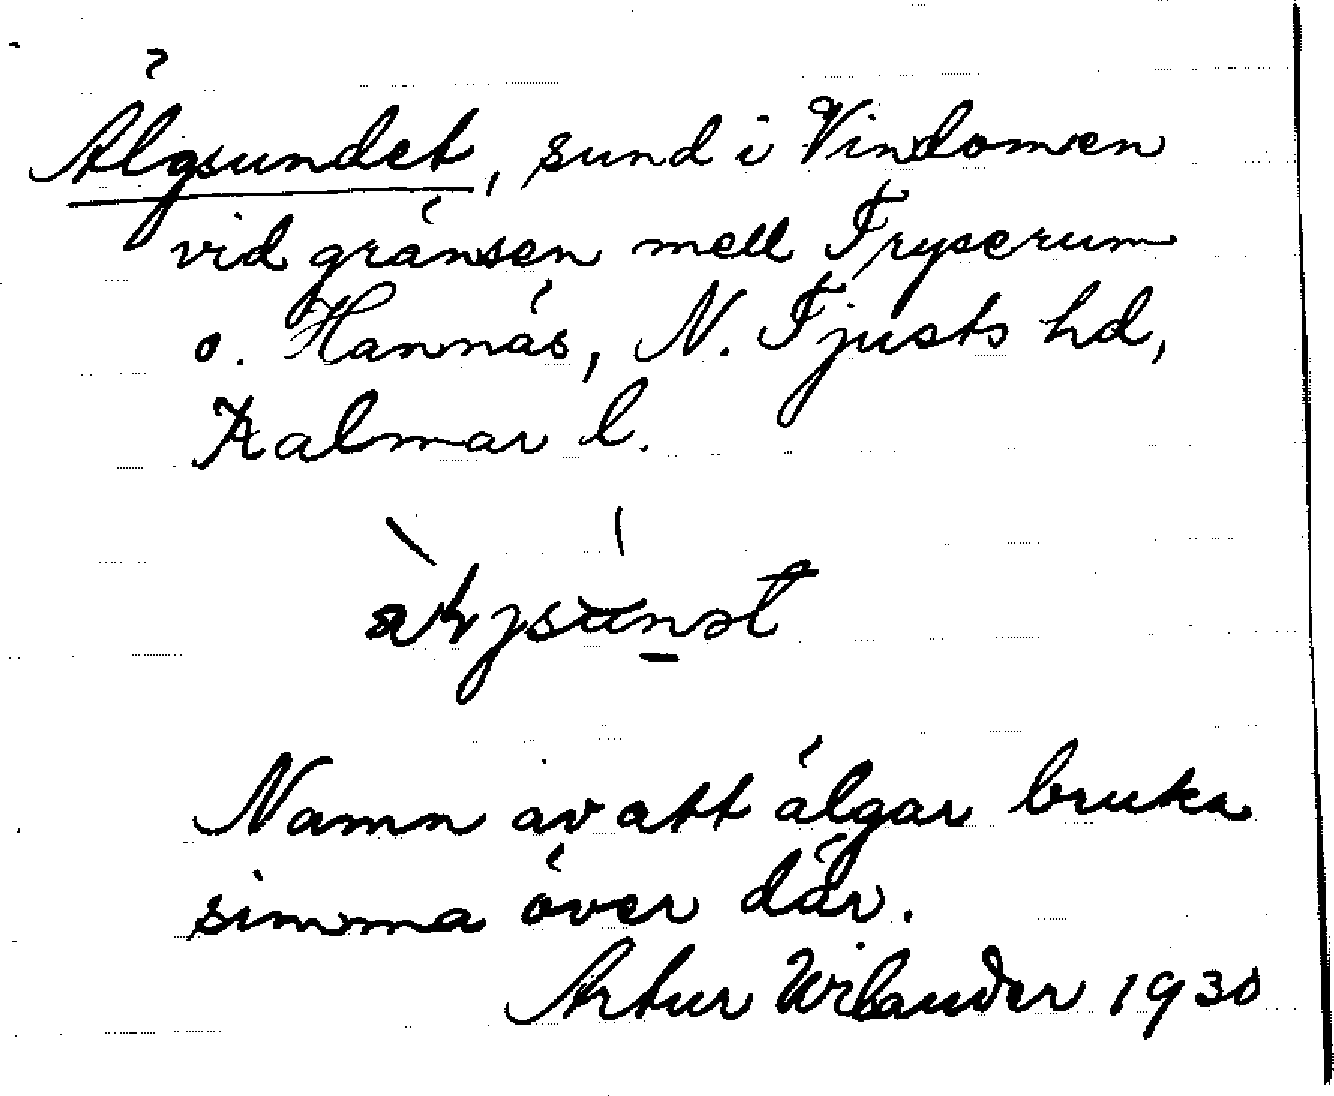 Älgsundet, sund i Vindomen
vid gränsen mell Tryserum
o. Hannäs, N. Tjusts hd,
Kalmar l.
Namn av att älgar bruka
simma över där.
Artur Wilander 1930